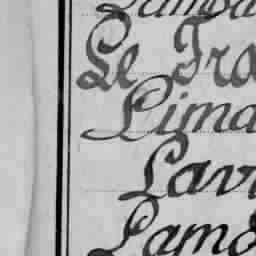 Le Tra
Lima
Lavi
Lamo